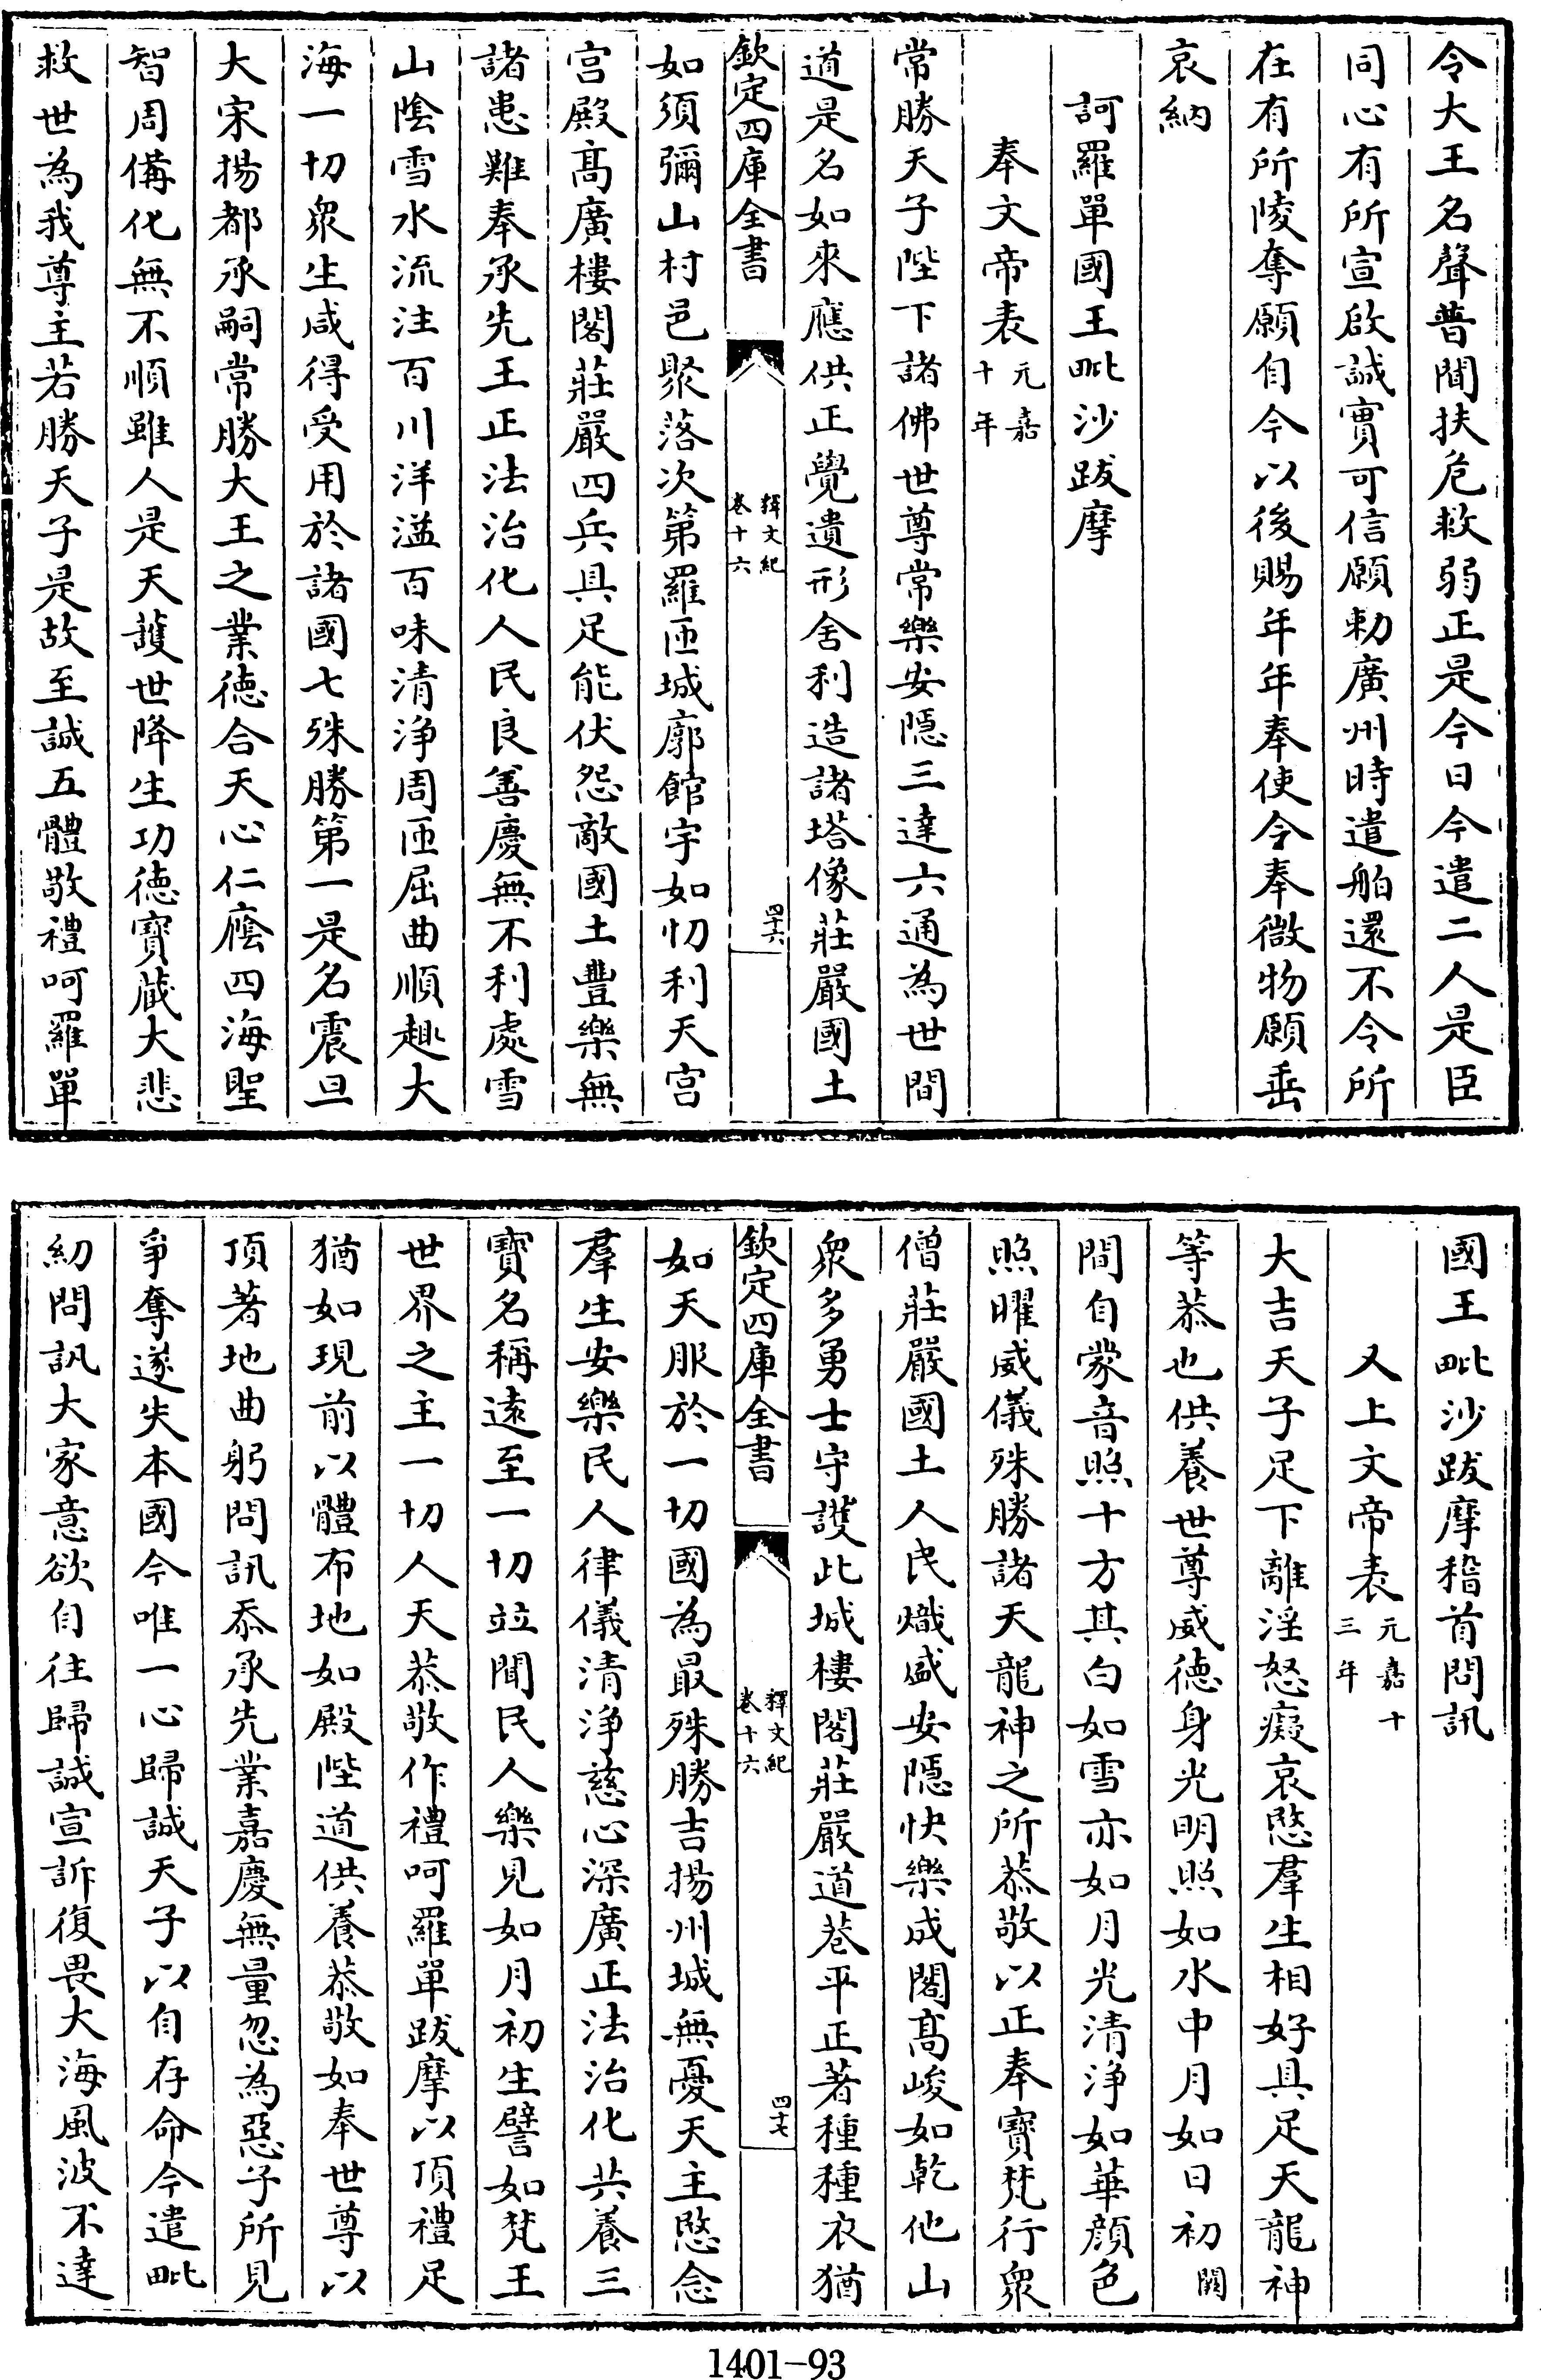 令大王名聲普聞扶危救弱正是今日今遣二人是臣
同心有所宣啟誠實可信願勅廣州時遣舶還不令所
在有所陵奪願自今以後賜年年奉使今奉微物願垂
哀納
訶羅單國王毗沙跋摩
奉文帝表元嘉十年
常勝天子陛下諸佛世尊常樂安隱三達六通為世間
道是名如來應供正覺遺形舍利造諸塔像莊嚴國土
欽定四庫全書 釋文紀卷十六 四十六
如須彌山村邑聚落次第羅匝城廓館宇如忉利天宫
宫殿髙廣樓閣莊嚴四兵具足能伏怨敵國土豐樂無
諸患難奉承先王正法治化人民良善慶無不利處雪
山陰雪水流注百川洋溢百味清浄周匝屈曲順趣大
海一切衆生咸得受用於諸國七殊勝第一是名震旦
大宋揚都承嗣常勝大王之業徳合天心仁廕四海聖
智周備化無不順雖人是天護世降生功徳寶藏大悲
救世為我尊主若勝天子是故至誠五體敬禮呵羅單
國王毗沙跋摩稽首問訊
又上文帝表元嘉十三年
大吉天子足下離淫怒癡哀愍羣生相好具足天龍神
等恭也供養世尊威徳身光明照如水中月如日初闕
間自䝉音照十方其白如雪亦如月光清浄如華顔色
照曜威儀殊勝諸天龍神之所恭敬以正奉寶梵行衆
僧莊嚴國土人民熾盛安隱快樂成閣髙峻如乾他山
衆多勇士守護此城樓閣莊嚴道巷平正著種種衣猶
欽定四庫全書 釋文紀卷十六 四十七
如天服於一切國為最殊勝吉揚州城無憂天主愍念
羣生安樂民人律儀清浄慈心深廣正法治化共養三
寶名稱遠至一切竝聞民人樂見如月初生譬如梵王
世界之主一切人天恭敬作禮呵羅單跋摩以頂禮足
猶如現前以體布地如殿陛道供養恭敬如奉世尊以
頂著地曲躬問訊忝承先業嘉慶無量忽為惡子所見
爭奪遂失本國今唯一心歸誠天子以自存命今遣毗
紉問訊大家意欲自往歸誠宣訴復畏大海風波不達
1401-93